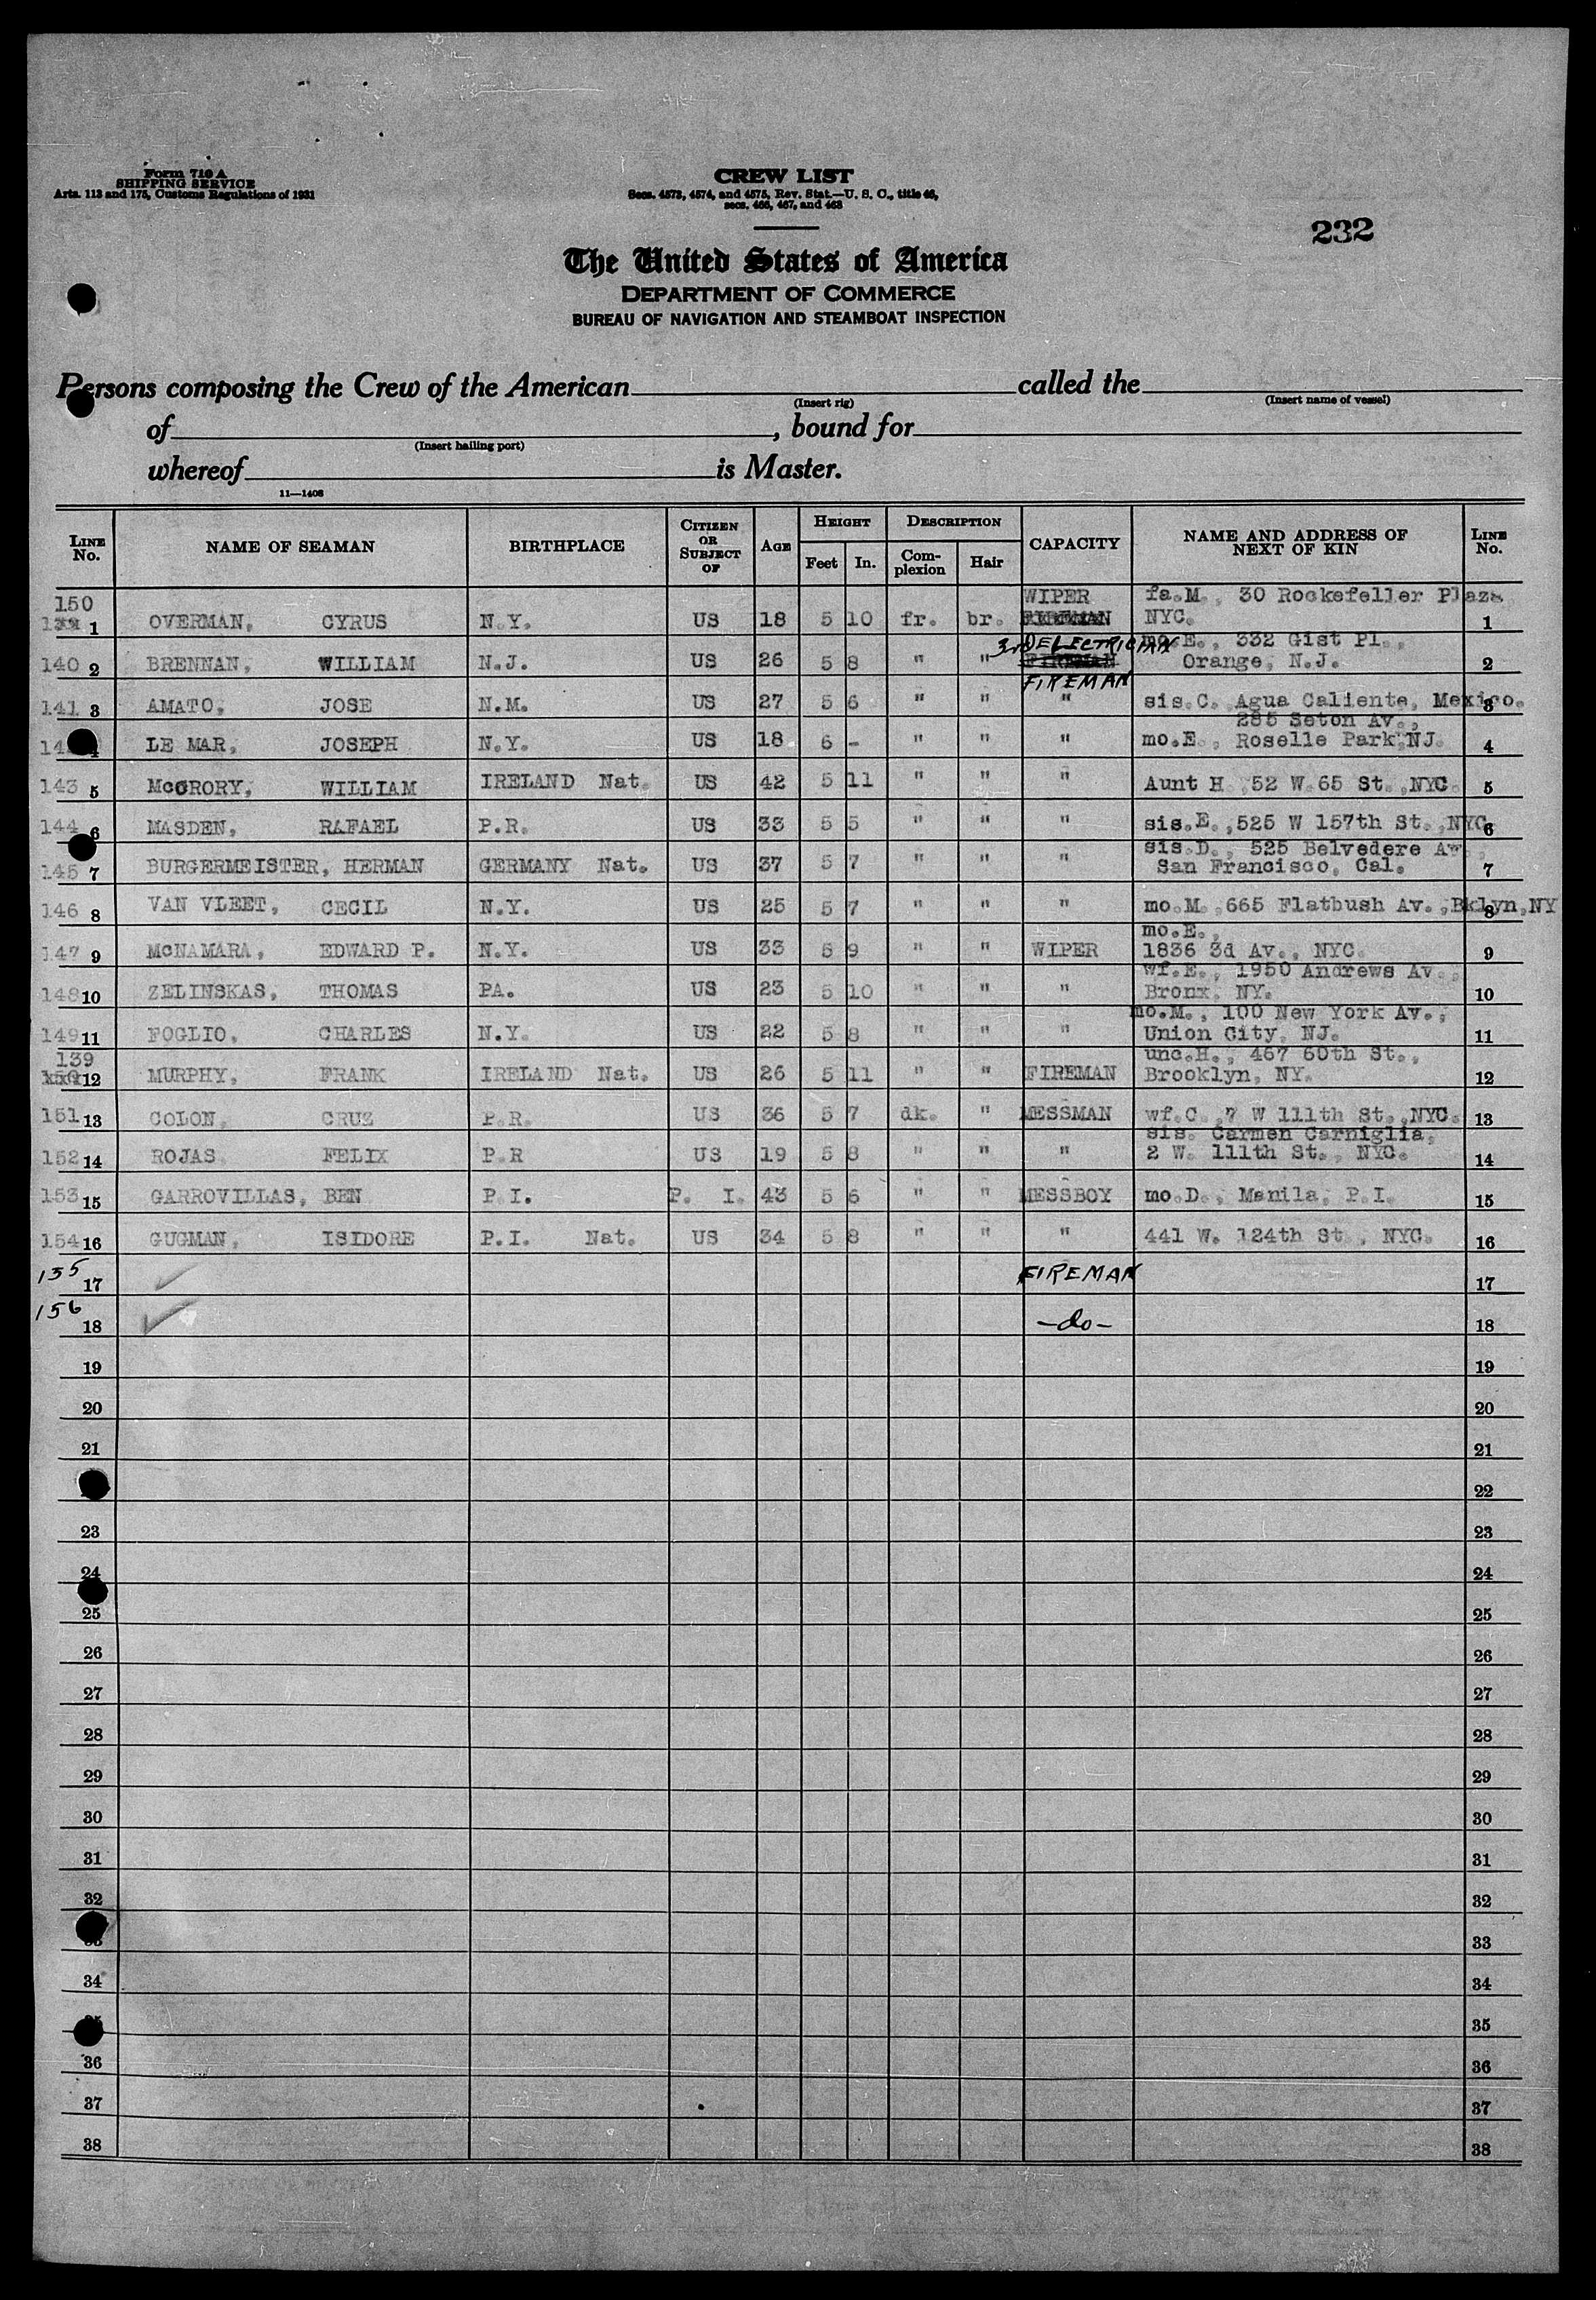 Form 710 A
SHIPPING SERVICE
Arts. 113 and 175, Customs Regulations of 1931
CREW LIST
Secs. 4573, 4574, and 4575, Rev. Stat.—U. S. C., title 46,
secs. 466, 467, and 468
232
The United States of America
DEPARTMENT OF COMMERCE
BUREAU OF NAVIGATION AND STEAMBOAT INSPECTION
Persons composing the Crew of the American called the
(Insert rig) (Insert name of vessel)
of , bound for
(Insert hailing port)
whereof is Master.
11—1408
LINE No. NAME OF SEAMAN BIRTHPLACE CITIZEN OR SUBJECT OF AGE HEIGHT Feet In. DESCRIPTION Complexion Hair CAPACITY NAME AND ADDRESS OF NEXT OF KIN LINE No.
150 WIPER fa.M., 30 Rockefeller Plaza
1 OVERMAN, CYRUS N.Y. US 18 5 10 fr. br. FIREMAN NYC. 1
3rd ELECTRICIAN mo.E., 332 Gist Pl.,
140 2 BRENNAN, WILLIAM N.J. US 26 5 8 " " FIREMAN Orange, N.J. 2
FIREMAN
141 3 AMATO, JOSE N.M. US 27 5 6 " " " sis.C. Agua Caliente, Mexico. 3
285 Seton Av.,
14 4 LE MAR, JOSEPH N.Y. US 18 6 - " " " mo.E., Roselle Park,NJ. 4
143 5 McCRORY, WILLIAM IRELAND Nat. US 42 5 11 " " " Aunt H. ,52 W.65 St.,NYC. 5
144 6 MASDEN, RAFAEL P.R. US 33 5 5 " " " sis.E.,525 W 157th St.,NYC 6
sis.D., 525 Belvedere Av.,
145 7 BURGERMEISTER, HERMAN GERMANY Nat. US 37 5 7 " " " San Francisco, Cal. 7
146 8 VAN VLEET, CECIL N.Y. US 25 5 7 " " " mo.M.,665 Flatbush Av.,Bklyn,NY 8
mo.E.,
147 9 McNAMARA, EDWARD P. N.Y. US 33 5 9 " " WIPER 1836 3d Av., NYC. 9
wf.E., 1950 Andrews Av.,
148 10 ZELINSKAS, THOMAS PA. US 23 5 10 " " " Bronx, NY. 10
mo.M., 100 New York Av.,
149 11 FOGLIO, CHARLES N.Y. US 22 5 8 " " " Union City, NJ. 11
139 unc.H., 467 60th St.,
12 MURPHY, FRANK IRELAND Nat. US 26 5 11 " " FIREMAN Brooklyn, NY. 12
151 13 COLON, CRUZ P.R. US 36 5 7 dk. " MESSMAN wf.C.,7 W 111th St.,NYC. 13
sis. Carmen Carniglia,
152 14 ROJAS, FELIX P.R US 19 5 8 " " " 2 W. 111th St., NYC. 14
153 15 GARROVILLAS, BEN P.I. P. I. 43 5 6 " " MESSBOY mo.D., Manila, P.I. 15
154 16 GUGMAN, ISIDORE P.I. Nat. US 34 5 8 " " " 441 W. 124th St., NYC. 16
155 17 FIREMAN 17
156 18 -do- 18
19 19
20 20
21 21
22
23 23
24 24
25 25
26 26
27 27
28 28
29 29
30 30
31 31
32 32
33 33
34 34
35 35
36 36
37 37
38 38